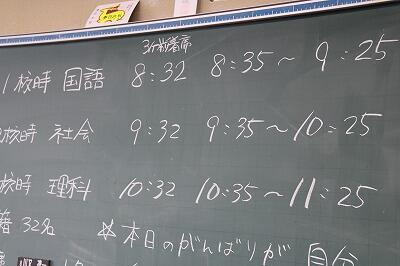 3分前着席
1校時 国語 8:32 8:35～9:25
校時 社会 9:32 9:35～10:25
校時 理科 10:32 10:35～11:25
籍 32名 ☆本日のがんばりが 自分
席